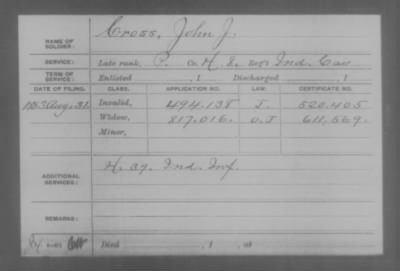 NAME OF SOLDIER: Cross, John J.
SERVICE: Late rank, P. Co. H. 8, Ind. Cav
TERM OF SERVICE: Enlisted , 1 Discharged , 1
DATE OF FILING. CLASS. APPLICATION NO. LAW. CERTIFICATE NO.
Aug. 31. Invalid, 494.138 J. 520.405
Widow, 817.016. O.J 611,569.
Minor,
ADDITIONAL SERVICES: H. 39. Ind. Inf.
REMARKS:
Died , 1 , at